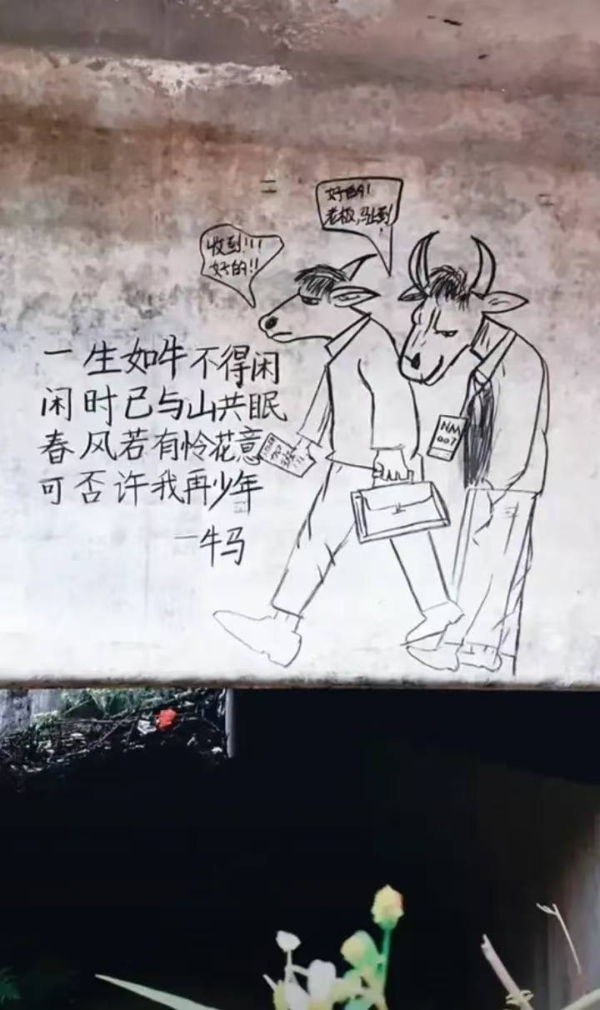 好的!
老板,马上到!
收到!!!
好的!!
一生如牛不得闲
闲时已与山共眠
春风若有怜花意
可否许我再少年
一牛马
NM
007